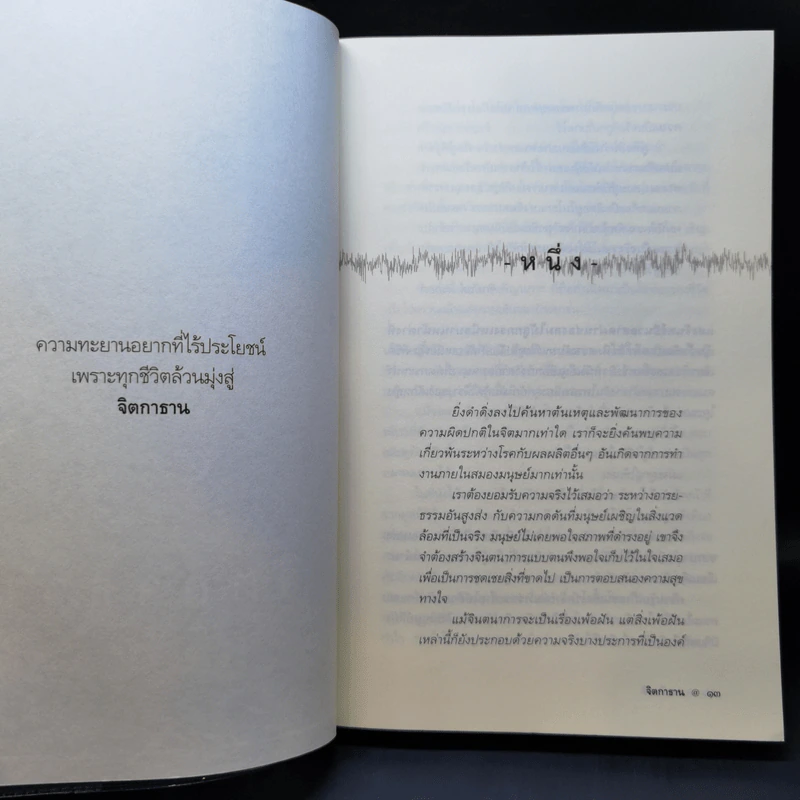 ความทะยานอยากที่ไร้ประโยชน์
เพราะทุกชีวิตล้วนมุ่งสู่
จิตกาธาน
- ห นึ่ ง -
ยิ่งดำดิ่งลงไปค้นหาต้นเหตุและพัฒนาการของ
ความผิดปกติในจิตมากเท่าใด เราก็จะยิ่งค้นพบความ
เกี่ยวพันระหว่างโรคกับผลผลิตอื่นๆ อันเกิดจากการทำ
งานภายในสมองมนุษย์มากเท่านั้น
เราต้องยอมรับความจริงไว้เสมอว่า ระหว่างอารย-
ธรรมอันสูงส่ง กับความกดดันที่มนุษย์เผชิญในสิ่งแวด
ล้อมที่เป็นจริง มนุษย์ไม่เคยพอใจสภาพที่ดำรงอยู่ เขาจึง
จำต้องสร้างจินตนาการแบบตนพึงพอใจเก็บไว้ในใจเสมอ
เพื่อเป็นการชดเชยสิ่งที่ขาดไป เป็นการตอบสนองความสุข
ทางใจ
แม้จินตนาการจะเป็นเรื่องเพ้อฝัน แต่สิ่งเพ้อฝัน
เหล่านี้ก็ยังประกอบด้วยความจริงบางประการที่เป็นองค์
จิตกาธาน @ ๑๓